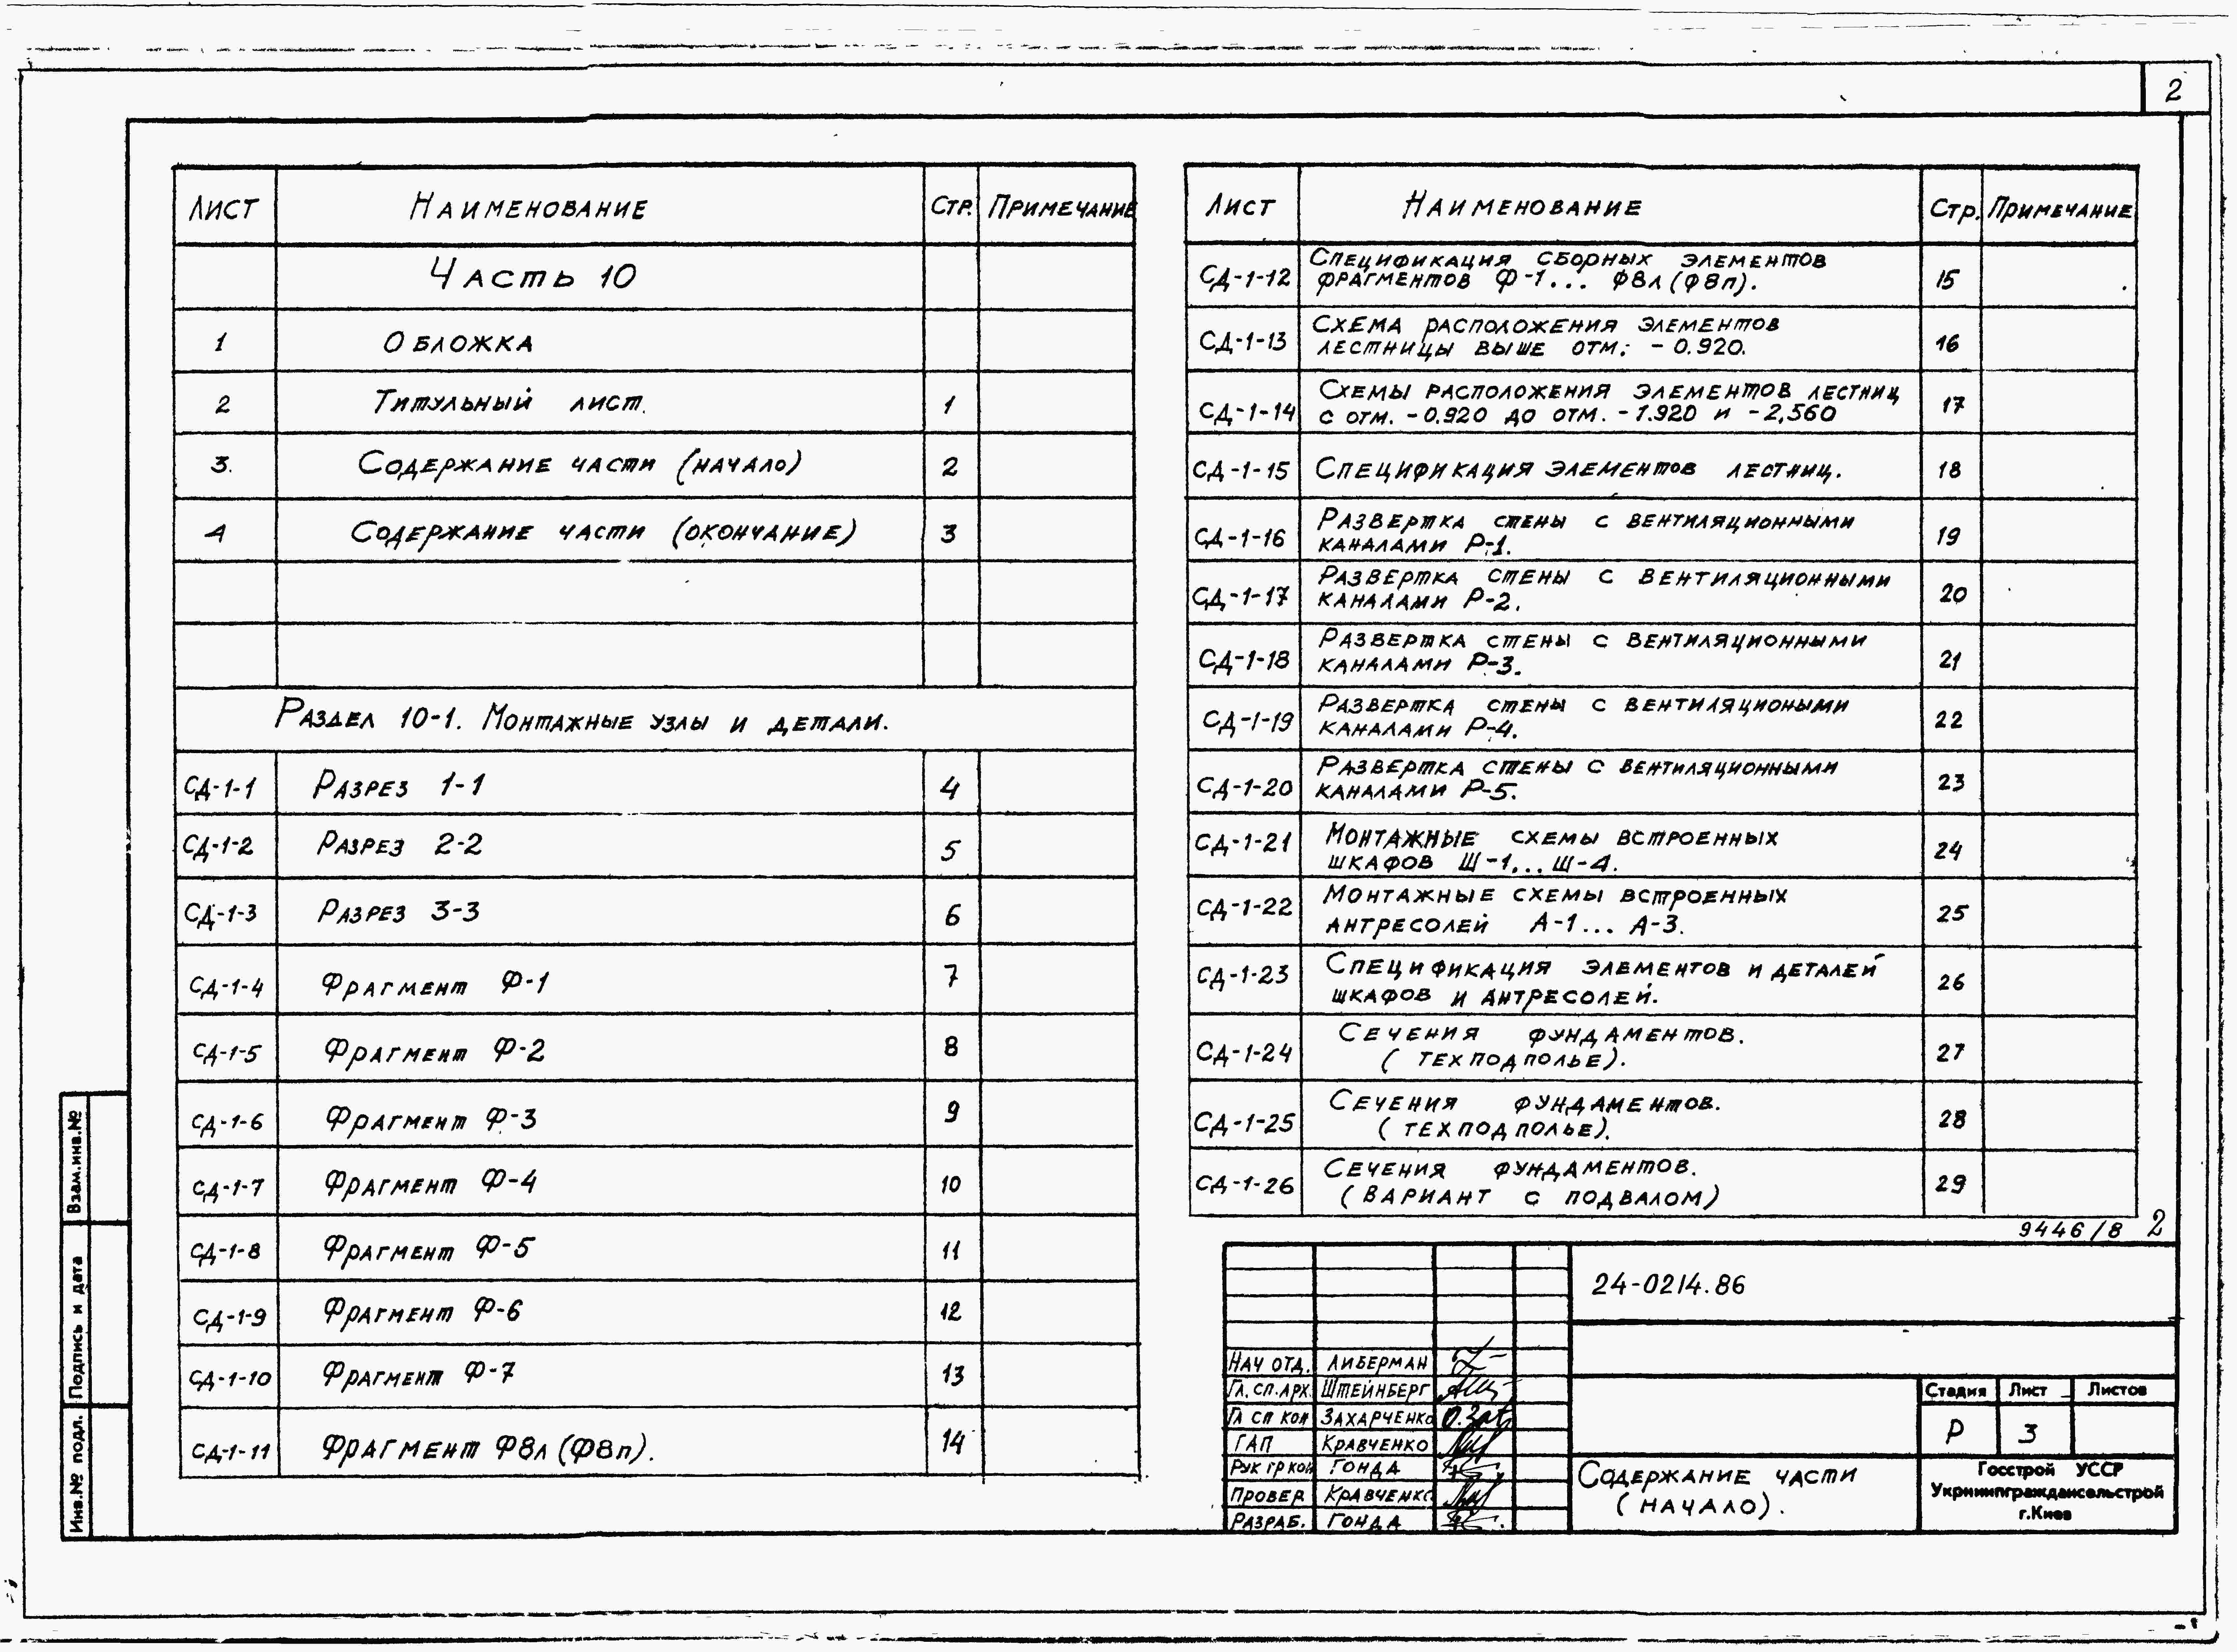 2
Лист Наименование Стр. Примечание
Часть 10
1 Обложка
2 Титульный лист. 1
3. Содержание части (начало) 2
4 Содержание части (окончание) 3
Раздел 10-1. Монтажные узлы и детали.
СД-1-1 Разрез 1-1 4
СД-1-2 Разрез 2-2 5
СД-1-3 Разрез 3-3 6
СД-1-4 Фрагмент Ф-1 7
СД-1-5 Фрагмент Ф-2 8
СД-1-6 Фрагмент Ф-3 9
СД-1-7 Фрагмент Ф-4 10
СД-1-8 Фрагмент Ф-5 11
СД-1-9 Фрагмент Ф-6 12
СД-1-10 Фрагмент Ф-7 13
СД-1-11 Фрагмент Ф8л (Ф8п). 14
Лист Наименование Стр. Примечание
Спецификация сборных элементов
СД-1-12 фрагментов Ф-1... Ф8л (Ф8п). 15
Схема расположения элементов
СД-1-13 лестницы выше отм. - 0.920. 16
Схемы расположения элементов лестниц
СД-1-14 с отм. -0.920 до отм. -1.920 и -2,560 17
СД-1-15 Спецификация элементов лестниц. 18
Развертка стены с вентиляционными
СД-1-16 каналами Р-1. 19
Развертка стены с вентиляционными
СД-1-17 каналами Р-2. 20
Развертка стены с вентиляционными
СД-1-18 каналами Р-3. 21
Развертка стены с вентиляциоными
СД-1-19 каналами Р-4. 22
Развертка стены с вентиляционными
СД-1-20 каналами Р-5. 23
СД-1-21 Монтажные схемы встроенных
шкафов Ш-1... Ш-4. 24
СД-1-22 Монтажные схемы встроенных
антресолей А-1... А-3. 25
СД-1-23 Спецификация элементов и деталей
шкафов и антресолей. 26
Сечения фундаментов.
СД-1-24 (техподполье). 27
Сечения фундаментов.
СД-1-25 (техподполье). 28
Сечения фундаментов.
СД-1-26 (вариант с подвалом) 29
9446/8 2
24-0214.86
Нач отд. Либерман
Гл. сп. арх. Штейнберг
Гл сп кон Захарченко
ГАП Кравченко
Рук гр кон Гонда
Провер Кравченко
Разраб. Гонда
Стадия Лист Листов
Р 3
Содержание части
(начало).
Госстрой УССР
Укрниипграждансельстрой
г.Киев
Взам.инв.№
Подпись и дата
Инв.№ подл.